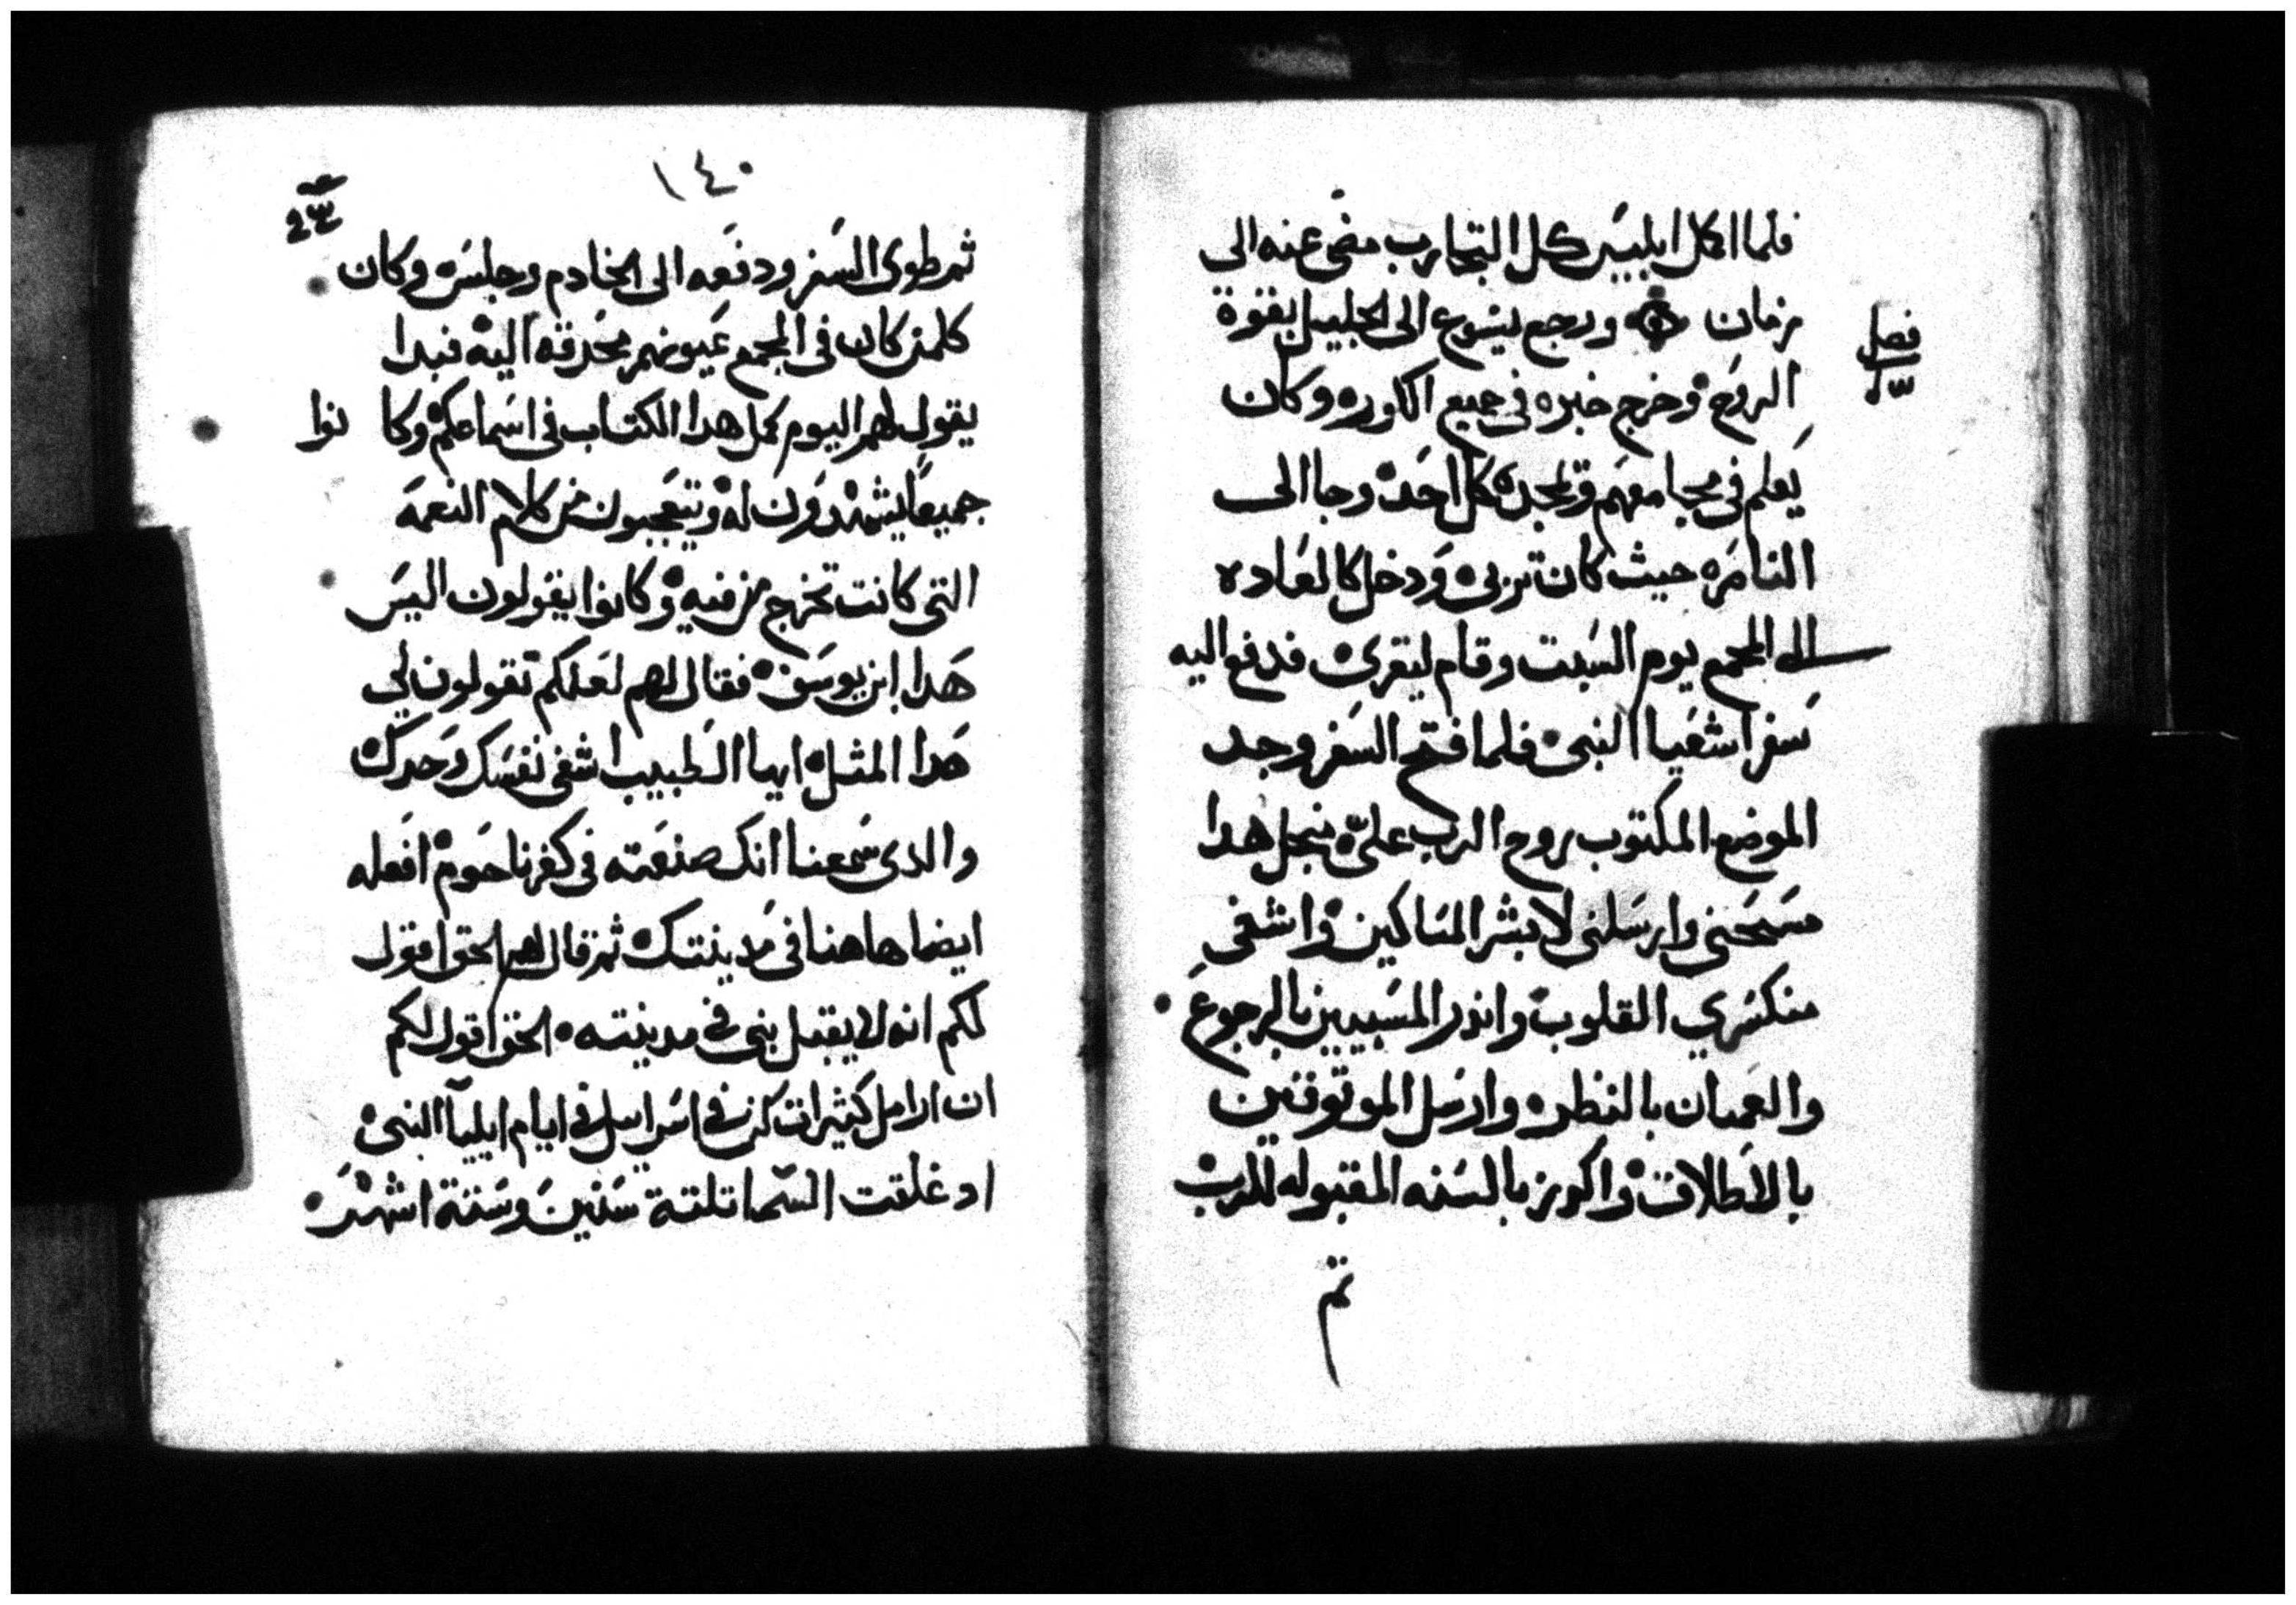 فلما اكمل ابليس كل التجارب مضى عنه الى
زمان ورجع يسوع الى الجليل بقوة
فصل
الروح وخرج خبره في جميع الكوره وكان
يعلم في مجامعهم ويمجده كل احد وجا الى
الناصره حيث كان تربى ودخل كالعاده
الى المجمع يوم السبت وقام ليقرى فدفع اليه
سفر اشعيا النبي فلما فتح السفر وجد
الموضع المكتوب روح الرب علي منجل هدا
مسحني وارسلني لابشر المساكين واشفي
منكسري القلوب واندر المسبيين بالرجوع
والعميان بالنظر وارسل الموثوقين
بالاطلاق واكرز بالسنه المقبوله للرب
تم
١٤٠
ثم طوى السفر ودفعه الى الخادم وجلس وكان
كلمن كان في المجمع عيونهم محدقه اليه فبدا
يقول لهم اليوم كمل هدا الكتاب في اسماعكم وكا نوا
جميعا يشهدون له ويتعجبون من كلام النعمه
التي كانت تخرج من فيه وكانوا يقولون اليس
هدا ابن يوسف فقال لهم لعلكم تقولون لي
هدا المثل ايها الطبيب اشفي نفسك وحدك
والدي سمعنا انك صنعته في كفرناحوم افعله
ايضا هاهنا في مدينتك ثم قال لهم الحق اقول
لكم انه لا يقبل نبي في مدينته الحق اقول لكم
ان ارامل كثيرات كن في اسراييل في ايام ايليا النبي
اد غلقت السما تلتة سنين وستة اشهر